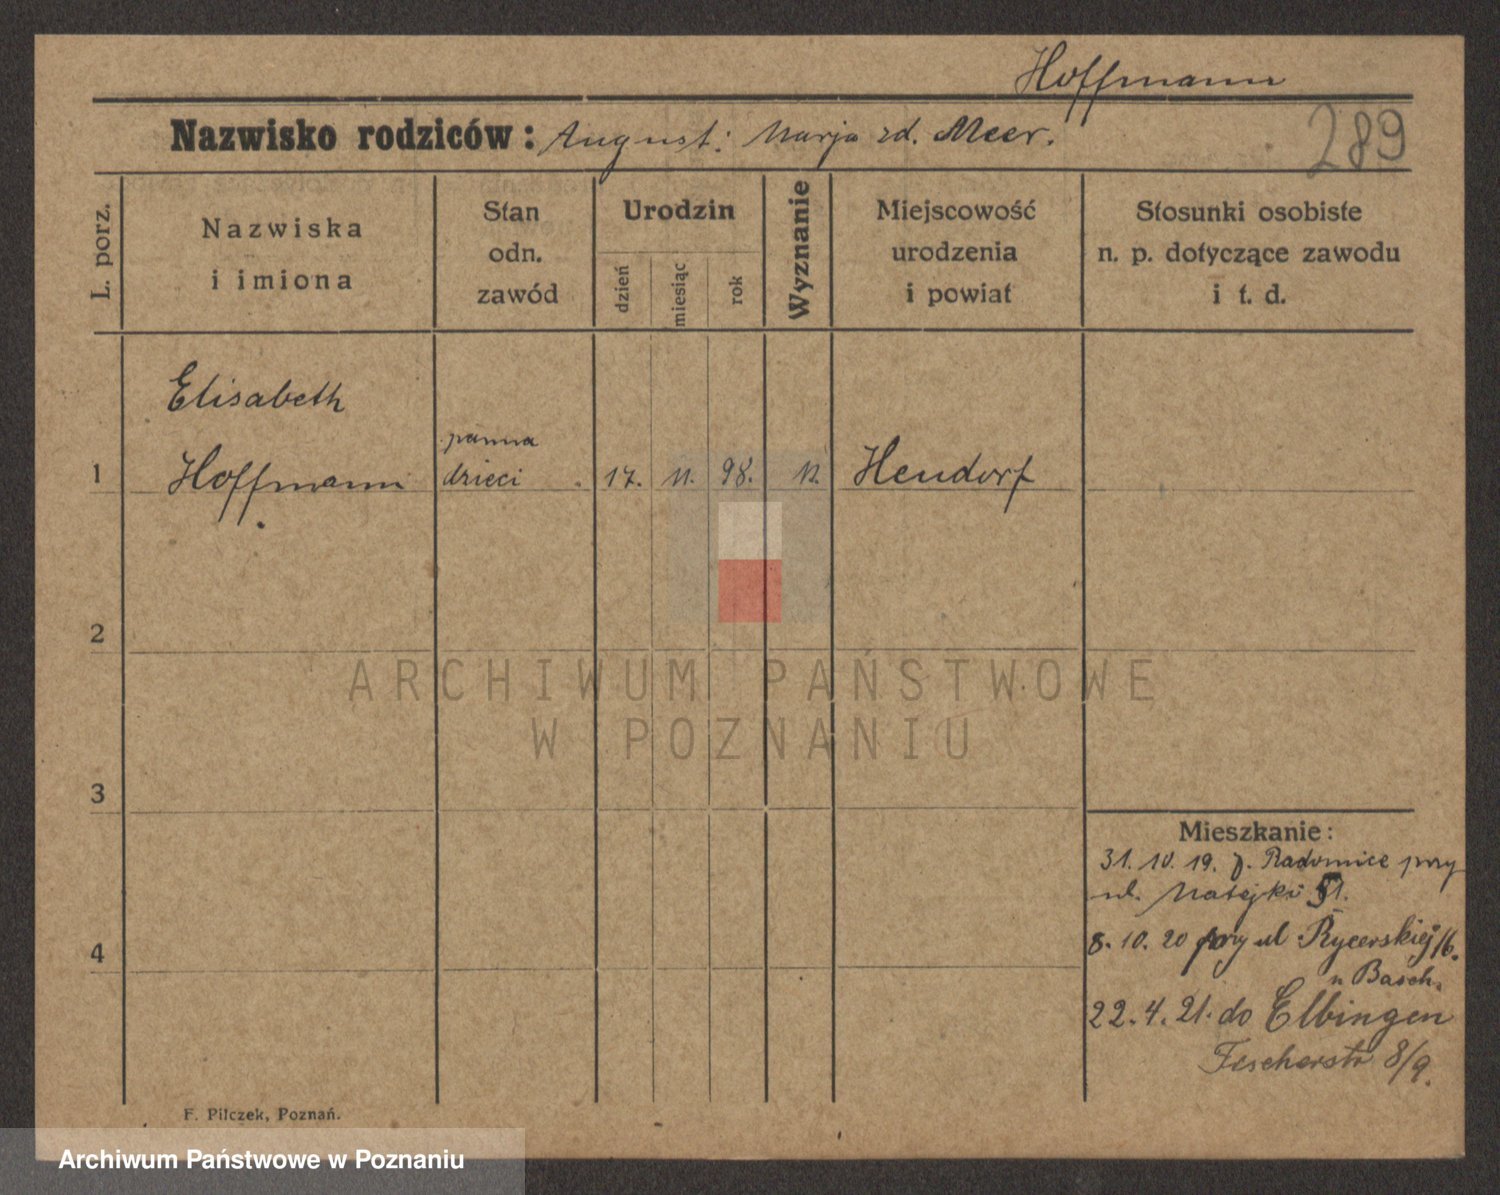 Hoffmann
Nazwisko rodziców: August. Marja zd. Meer.
289
L. porz.
Nazwiska
i imiona
Stan
odn.
zawód
Urodzin
dzień
miesiąc
rok
Wyznanie
Miejscowość
urodzenia
i powiat
Stosunki osobiste
n. p. dotyczące zawodu
i t. d.
Elisabeth
1
Hoffmann
panna
dzieci
17. 11. 98.
Hendorf
2
ARCHIWUM PAŃSTWOWE
W POZNANIU
3
4
Mieszkanie:
31. 10. 19. Radomice przy
ul. Matejki 51.
8. 10. 20 przy ul Rycerskiej 16.
n Basch.
22. 4. 21. do Elbingen
Fischerstr 8/9.
F. Pilczek, Poznań.
Archiwum Państwowe w Poznaniu